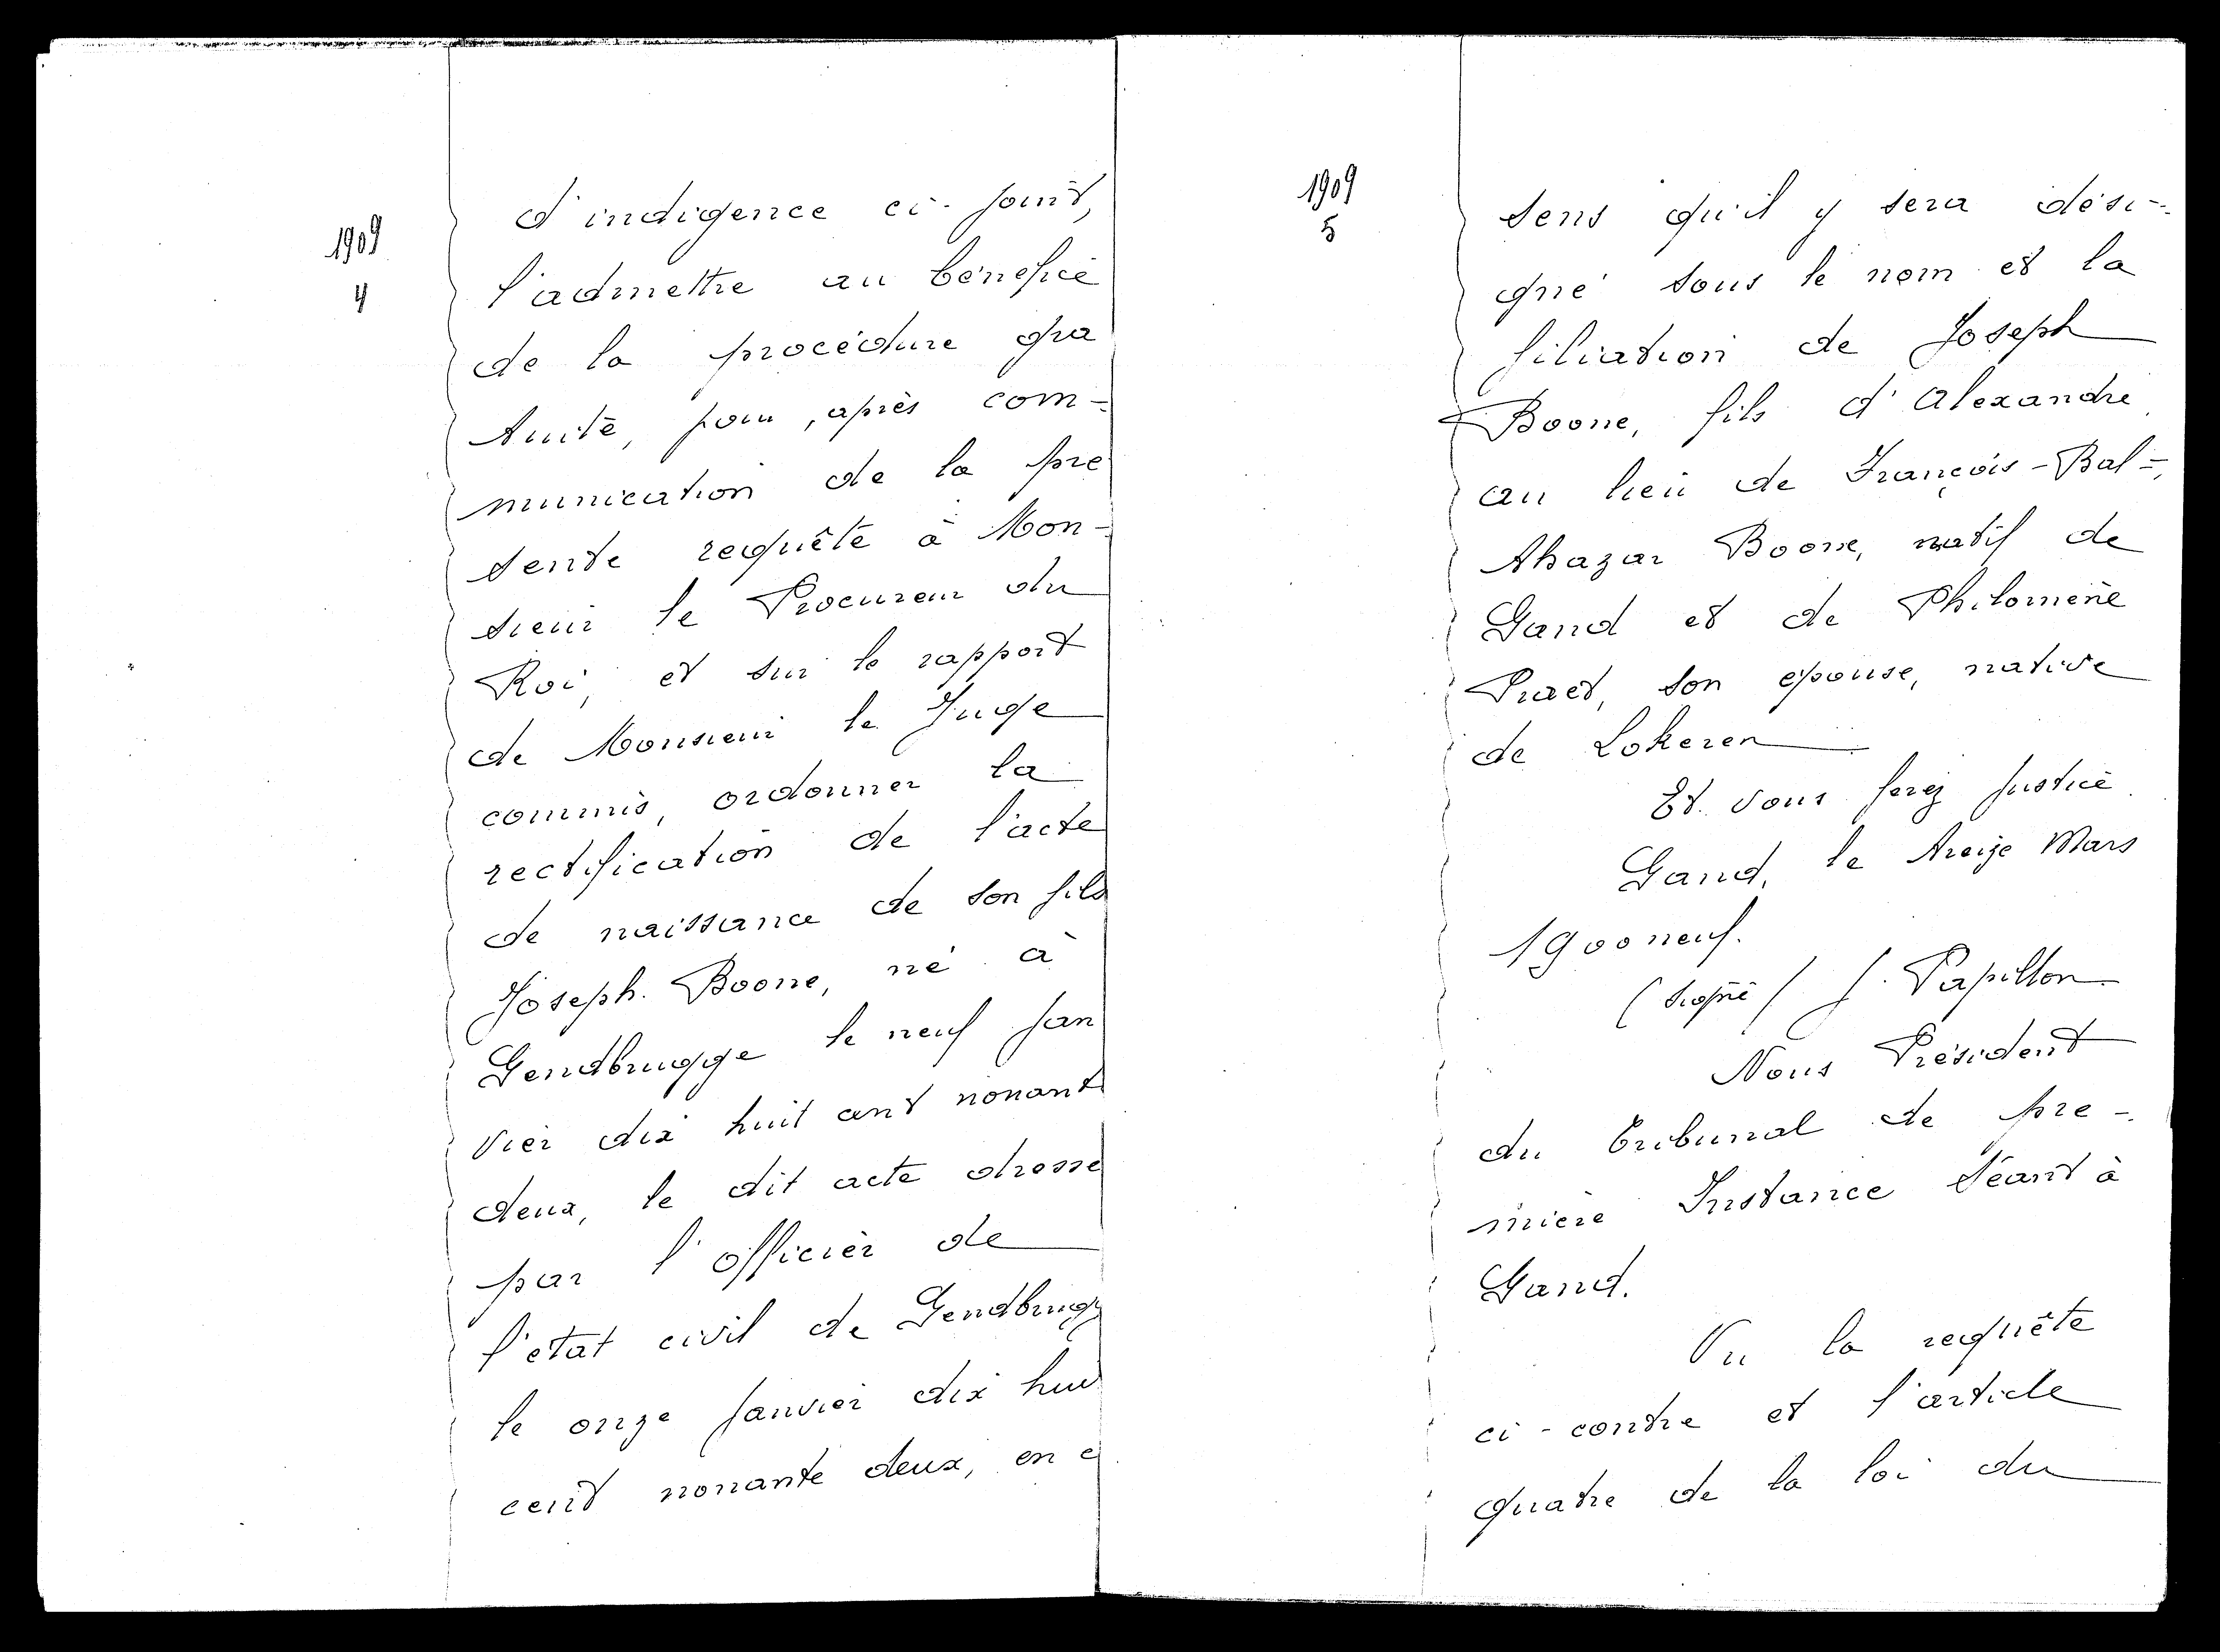 1909
4
d'indigence ci-joint,
l'admettre au bénéfice
de la procédure gra
tuite, pour, après com=
munication de la pre
sente requête à Mon-
sieur le Procureur du
Roi, et sur le rapport
de Monsieur le Juge
commis, ordonner la
rectification de l'acte
de naissance de son fils
Joseph Boone, né à
Gendbrugge le neuf jan
vier dix huit cent nonant
deux, le dit acte dressé
par l'officier de
l'état civil de Gendbrugg
le onze janvier dix huit
cent nonante deux, en c
1909
5
sens qu'il y sera dési=
gné sous le nom et la
filiation de Joseph
Boone, fils d'Alexandre
au lieu de François-Bal=
thazar Boone, natif de
Gand et de Philomène
Praet, son épouse, native
de Lokeren
Et vous ferez justice.
Gand, le treize Mars
1900 neuf.
(signé) J. Papillon
Nous Président
du Tribunal de pre-
mière Instance séant à
Gand.
Vu la requête
ci-contre et l'article
quatre de la loi du